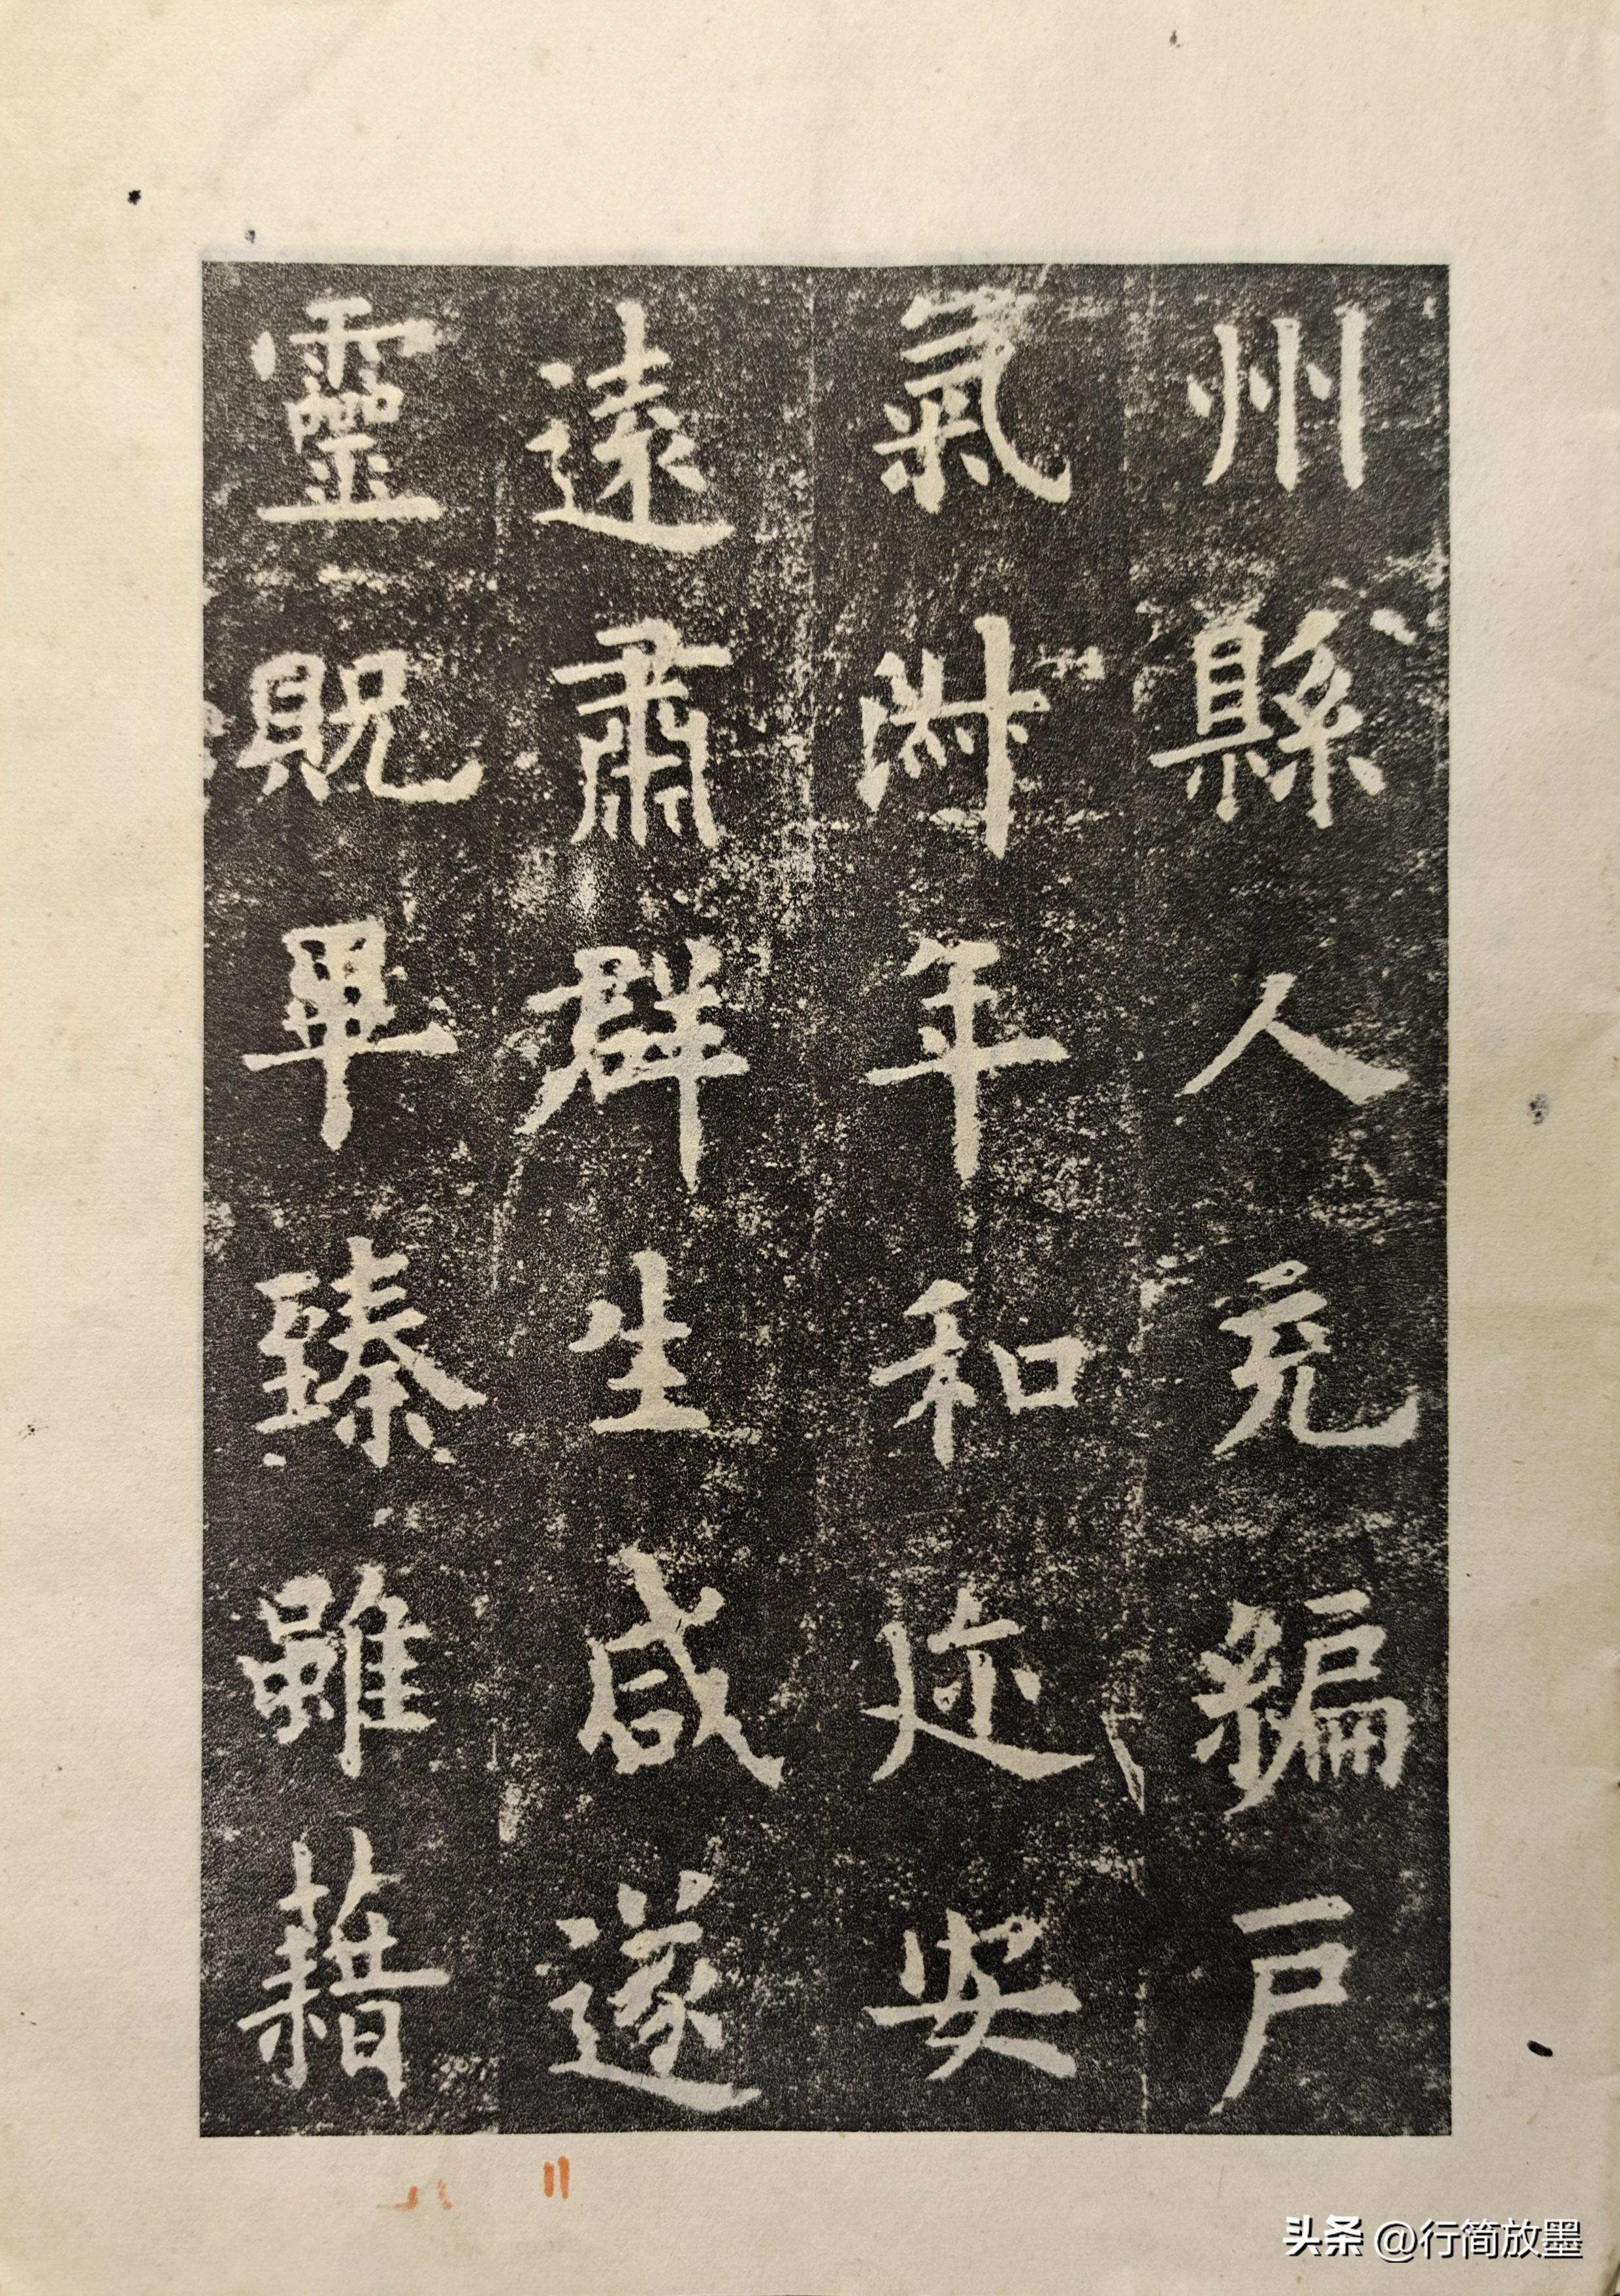 州縣人充編戶
氣淋年和迩安
遠肅群生咸遂
靈貺畢臻雖藉
头条 @行简放墨